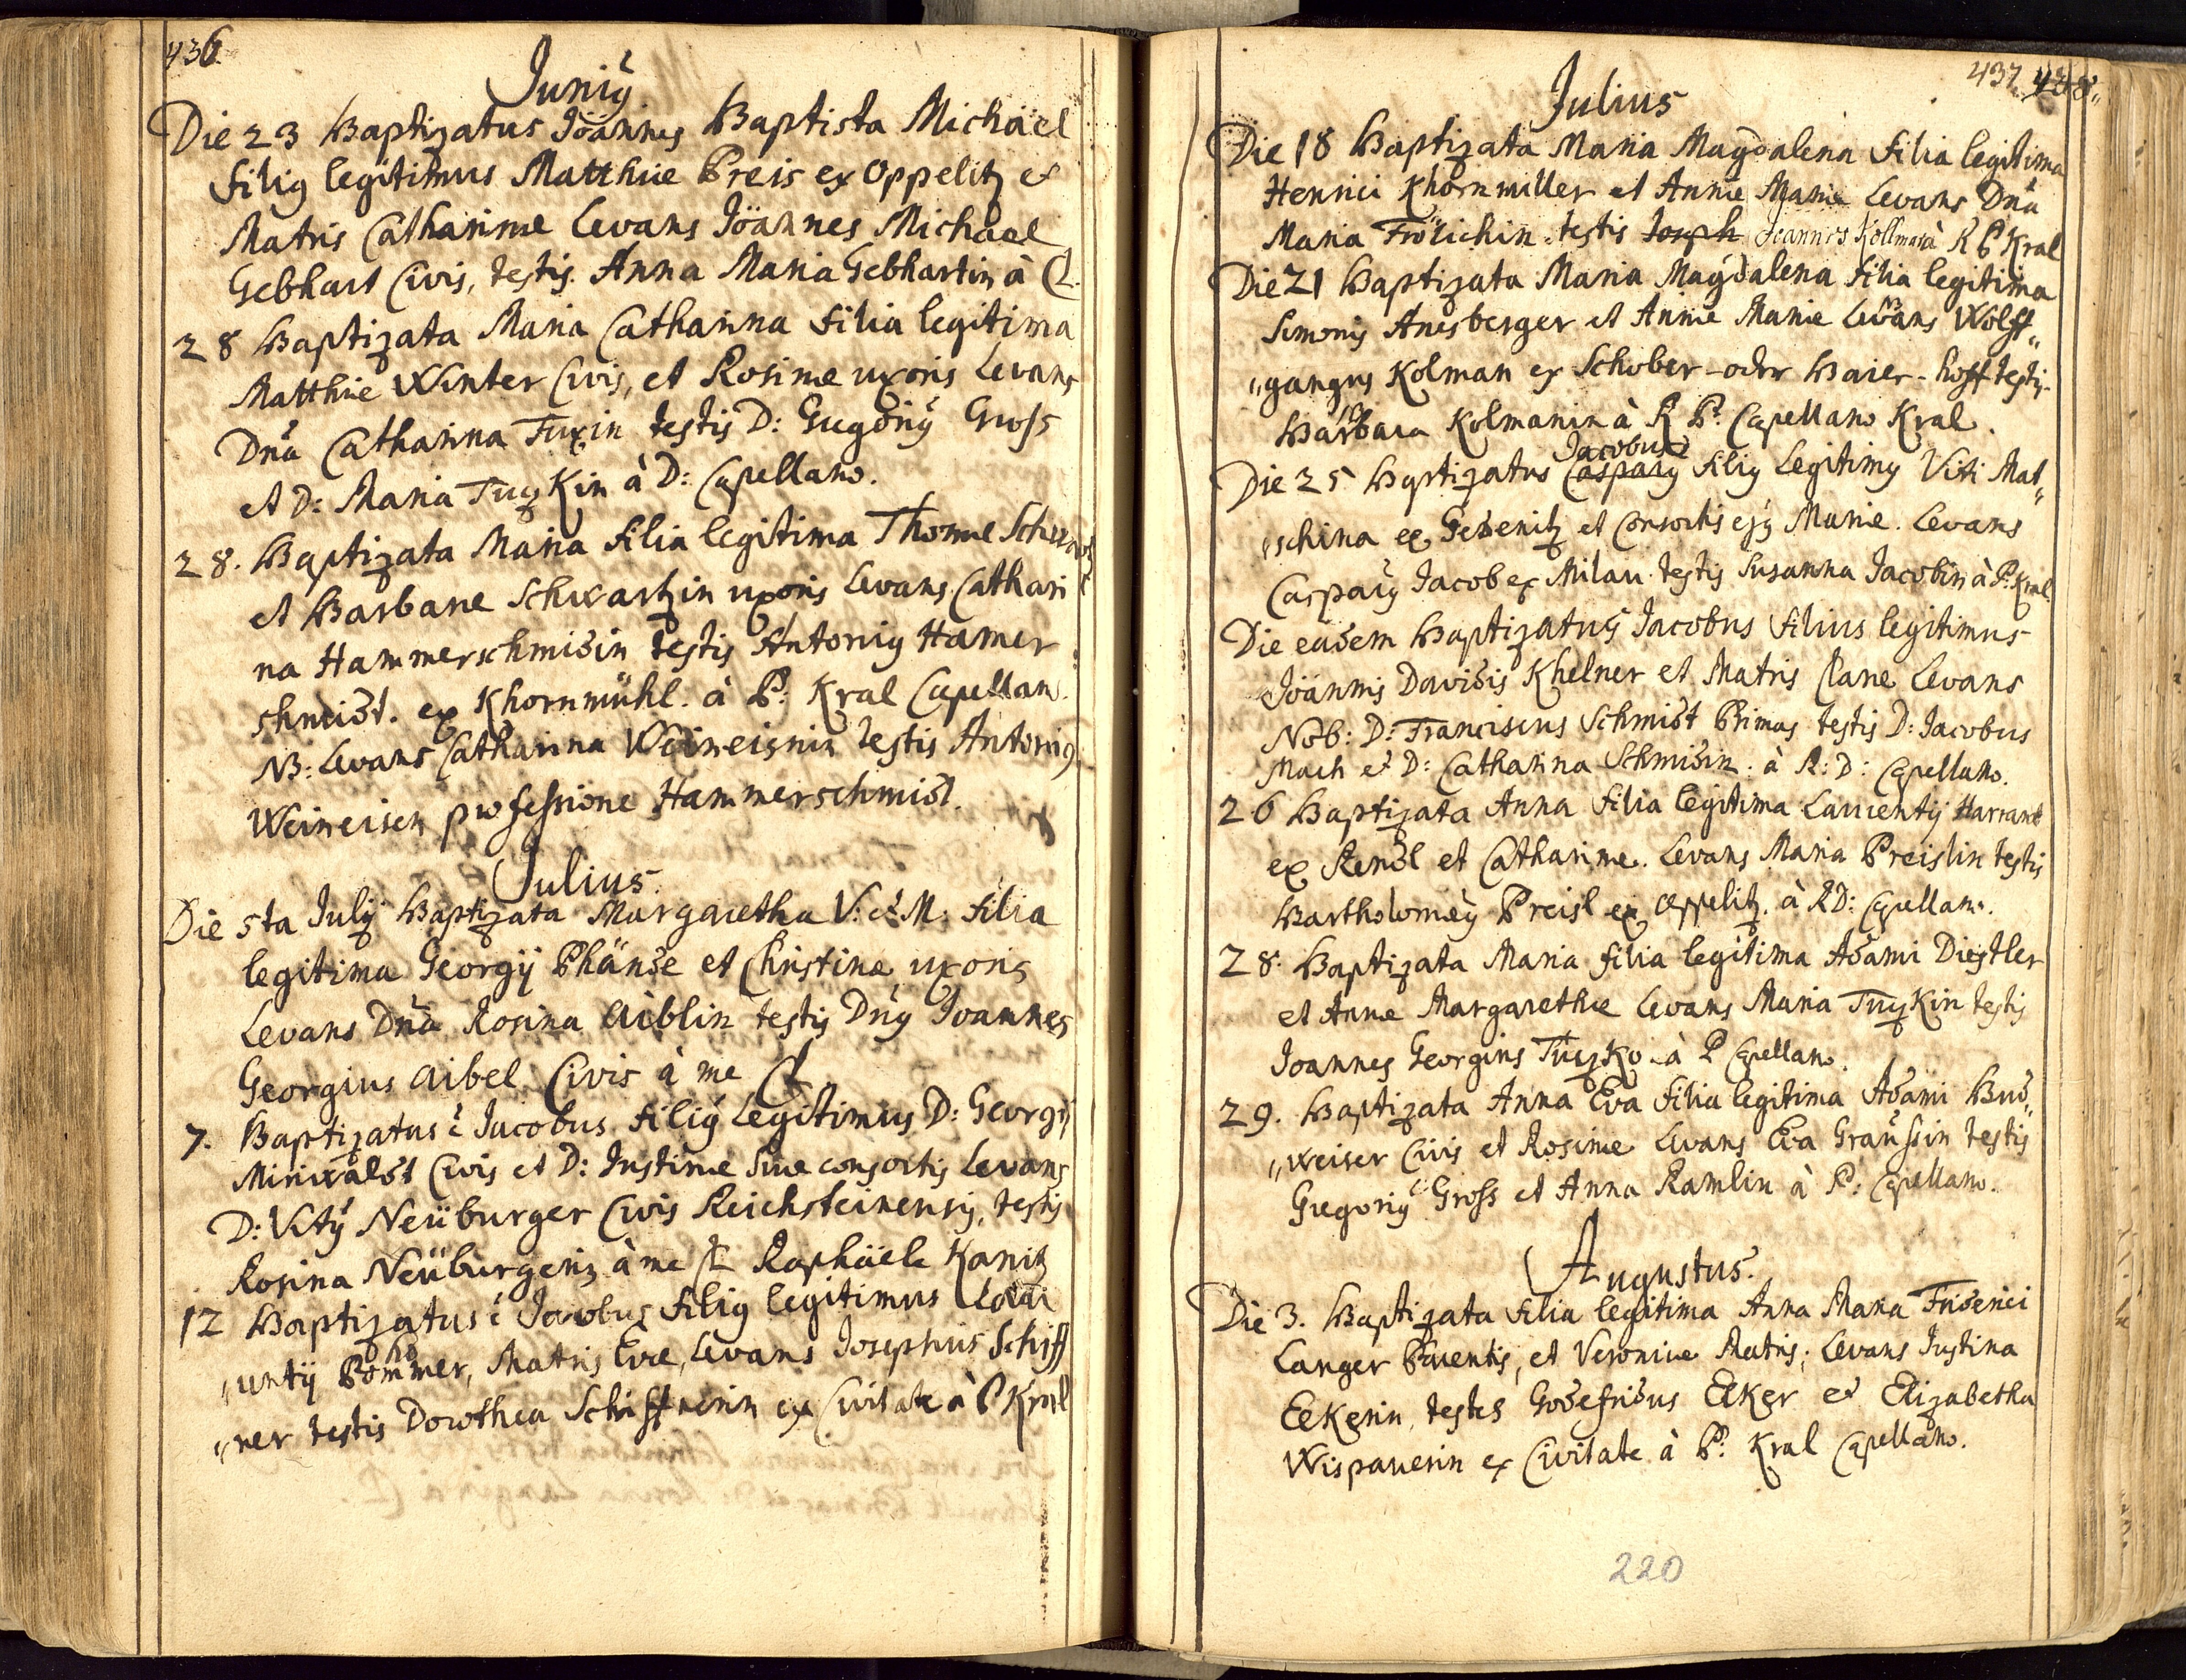 436
Junij
Die 23 Baptizatus Joannes Baptista Michäel
filiꝰ legitimus Matthiæ Preis ex Oppelitz et
Matris Catharinæ Levans Joannes Michael
Gebhart Civis, testis. Anna Maria Gebhartin à
28 Baptizata Maria Catharina filia legitima
Matthiæ Winter Civis, et Rosinæ uxoris Levans
Dna Catharina Fuxin testis D: Gregoriꝰ Gross
et D: Maria Tuczkin à D: Capellano.
28. Baptizata Maria filia legitima Thomæ Schwartz
et Barbaræ Schwartzin uxoris levans Cathari
na Hammerschmidin testis Antoniꝰ Hamer
schmidt. ex Khornmühl. à P: Kral Capellan.
NB: Levans Catharina Weineisnin testis Antoniꝰ
Weineisen professione Hammerschmidt.
Julius.
Die 5ta Julij Baptizata Margaretha V: et M: filia
legitima Georgij Phänse et Christinæ uxoris
Levans Dna Rosina Aiblin testis Dnꝰ Joannes
Georgius Aibel Civis à me
7. Baptizatus ē Jacobus filiꝰ Legitimus D: Georgij
Miniwaldt Civis et D: Justinæ suæ consortis Levans
D: Vitꝰ Neüburger Civis Reichsteinensis, testis
Rosina Neüburgerin à me Raphäele Kanitz
12 Baptizatus ē Jacobus filiꝰ legitimus Laur
„entij Pommer, Matris Evæ, Levans Josephus Schiff
„ner testis Dorothea Schiffnerin ex Civitate à P Kral
437 438„
Julius
Die 18 Baptizata Maria Magdalena filia legitima
Henrici Khornmiller et Annæ Mariæ Levans Dna
Maria Frölichin testis Joseph Joannes Kollman à R P Kral
Die 21 Baptizata Maria Magdalena filia legitima
Simonis Anesberger et Annæ Mariæ Levans Wolff„
„gangus Kolman ex Schober-oder Baier-hoff testis
Barbara Kolmanin à R P: Capellano Kral.
Jacobus
Die 25 Baptizatus Casparꝰ filiꝰ Legitimꝰ Viti Mat„
„schina ex Gedenitz et Consortis ejꝰ Mariæ. Levans
Casparꝰ Jacob ex Milau. testis Susanna Jacobin à P: Kral.
Die eadem Baptizatus Jacobus filius legitimus
Joannis Davidis Khelner et Matris Claræ Levans
Nob: D: Franciscus Schmidt Primas testis D: Jacobus
Mach et D: Catharina Schmidin. à R: D: Capellano.
26 Baptizata Anna filia legitima Laurentij Harrant
ex Rendl et Catharinæ. Levans Maria Preislin testis
Bartholomeꝰ Preisl ex Oppelitz. à RD: Capellano.
28. Baptizata Maria filia legitima Adami Diestler
et Annæ Margarethæ Levans Maria Tuczkin testis
Joannes Georgius Tuczko à P Capellano.
29. Baptizata Anna Eva filia legitima Adami Bud„
„weiser Civis et Rosinæ Levans Eva Graussin testis
Gregoriꝰ Gross et Anna Ramlin à P: Capellano.
Augustus.
Die 3. Baptizata filia legitima Anna Maria Friderici
Langer Parentis, et Veronicæ Matris; Levans Justina
Eekerin, testes Godefridus Eeker et Elizabetha
Wispauerin ex Civitate à P: Kral Capellano.
220